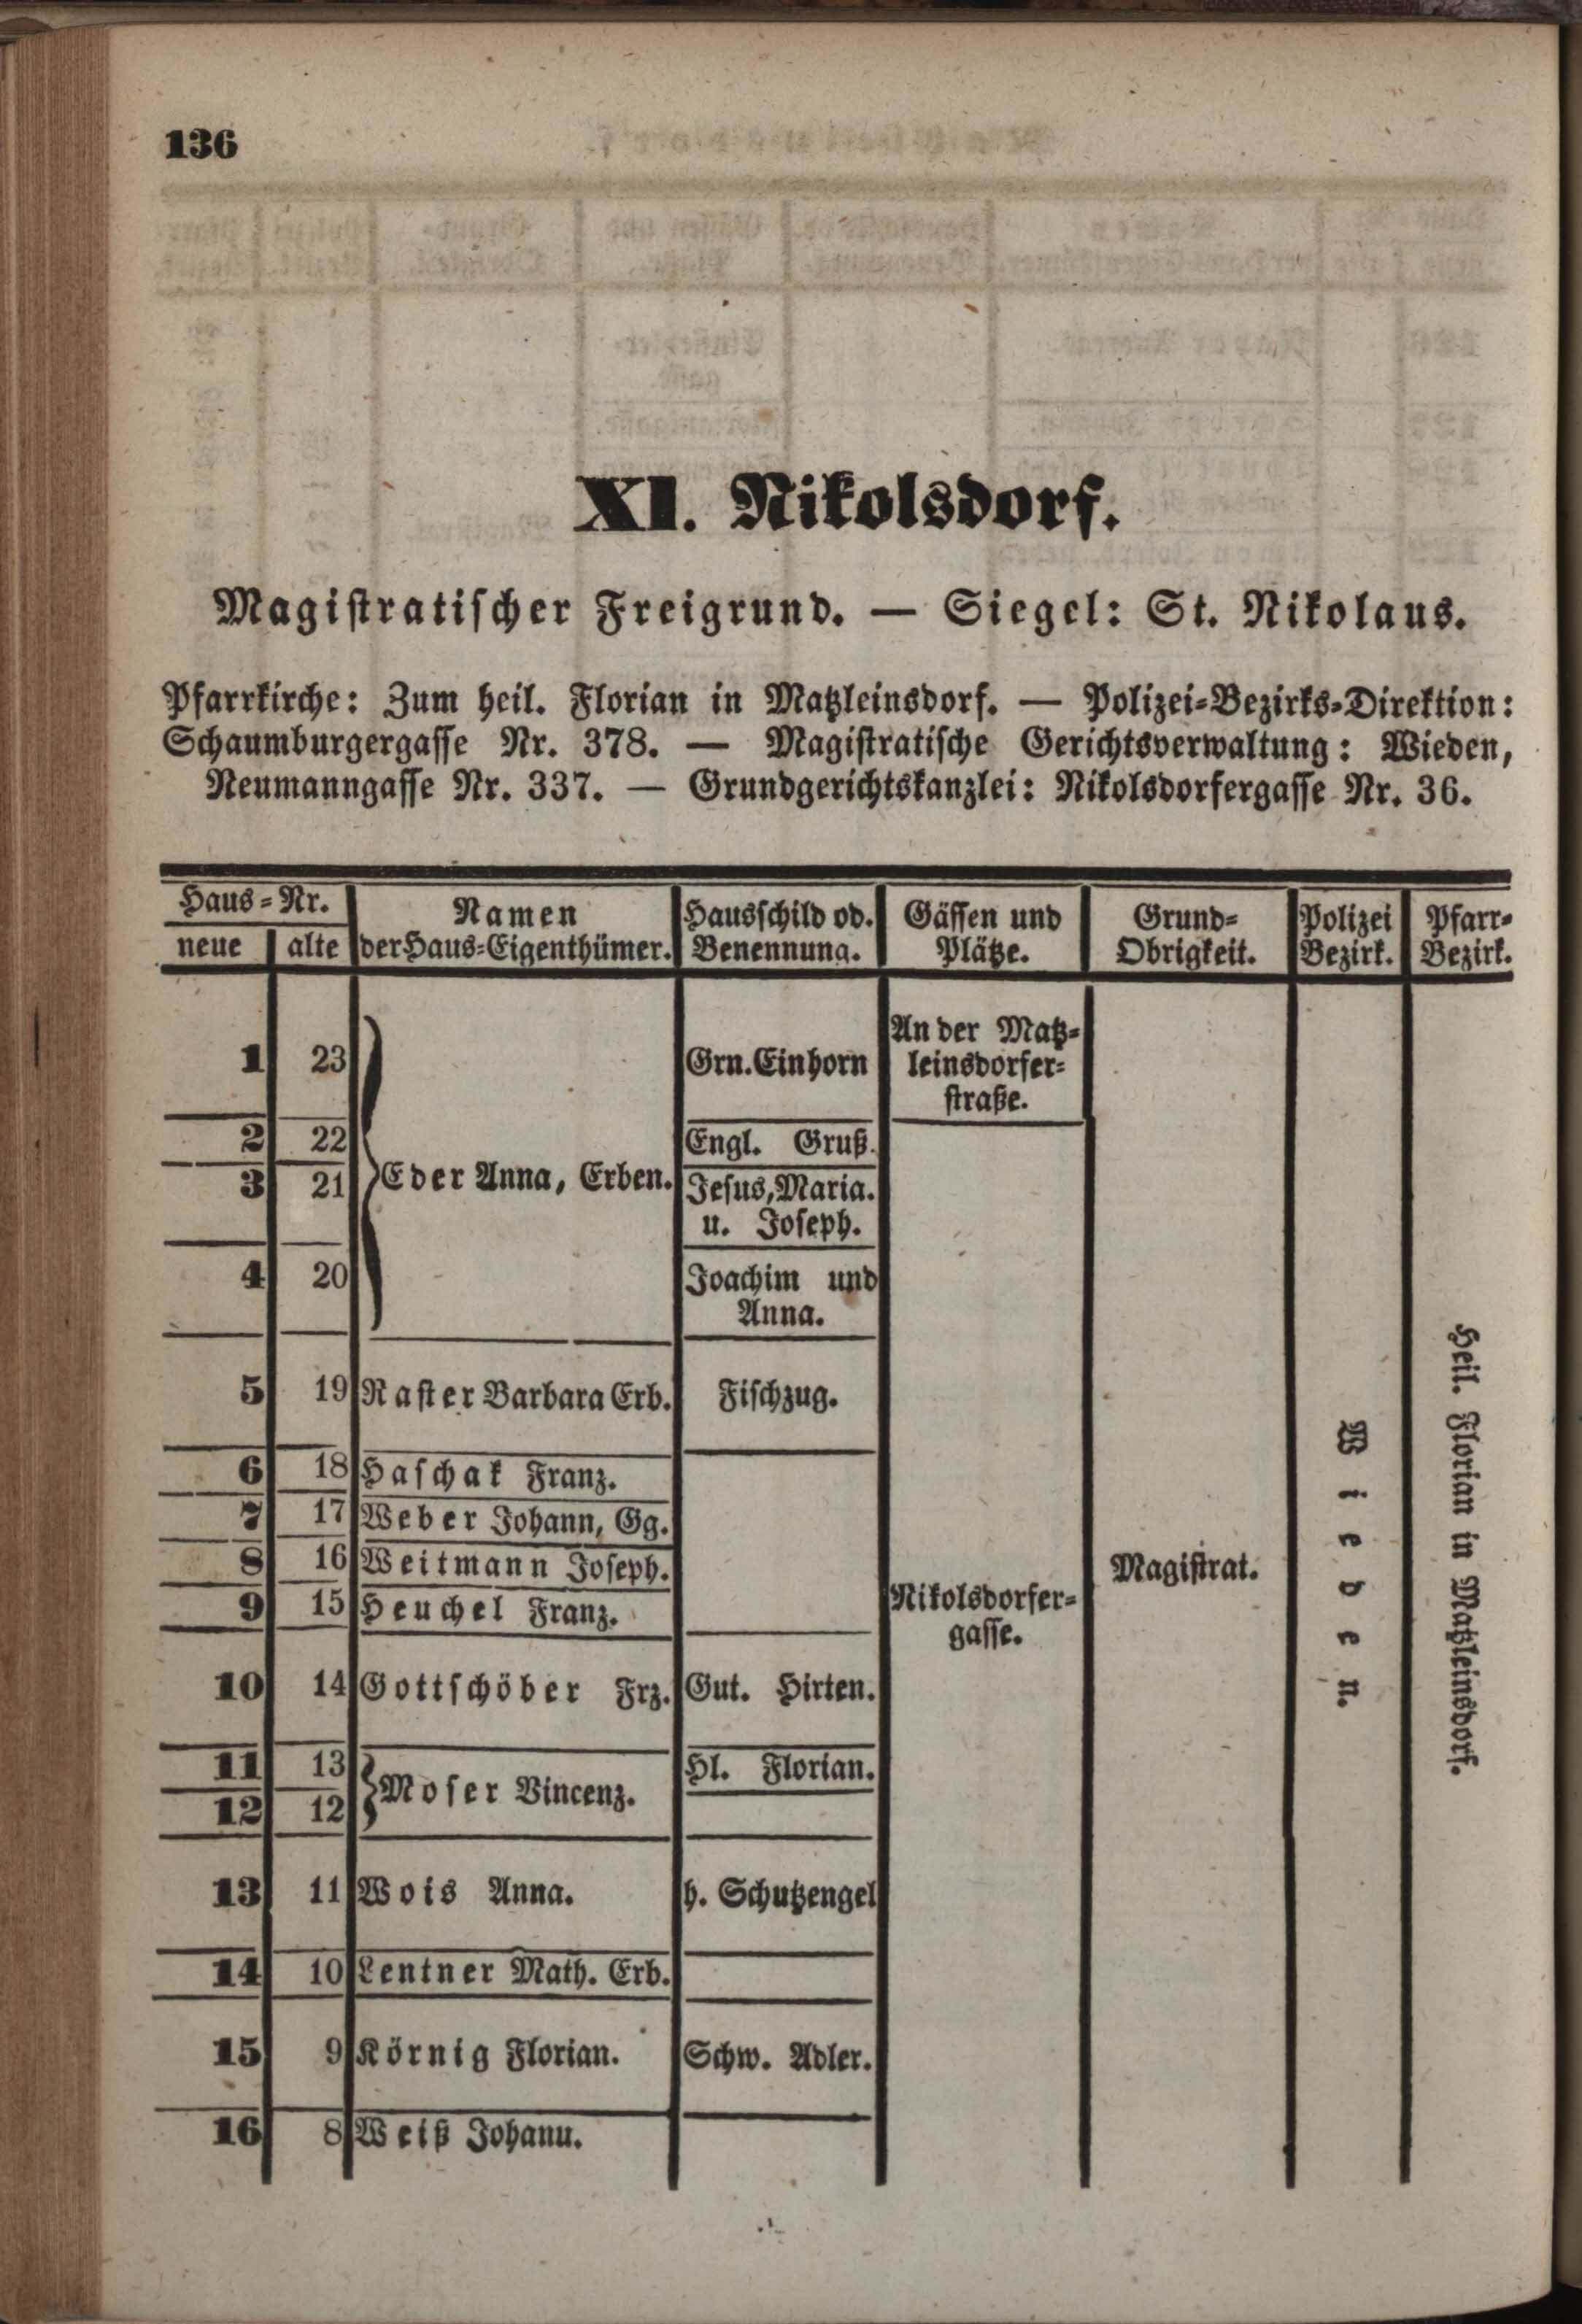 136
XI. Nikolsdorf.
Magistratischer Freigrund. — Siegel: St. Nikolaus.
Pfarrkirche: Zum heil. Florian in Matzleinsdorf. — Polizei-Bezirks-Direktion:
Schaumburgergasse Nr. 378. — Magistratische Gerichtsverwaltung: Wieden,
Neumanngasse Nr. 337. — Grundgerichtskanzlei: Nikolsdorfergasse Nr. 36.
Haus-Nr.
neue alte
Namen
der Haus-Eigenthümer.
Hausschild od.
Benennung.
Gässen und
Plätze.
Grund-
Obrigkeit.
Polizei
Bezirk.
Pfarr-
Bezirk.
1 23 Grn. Einhorn
An der Matz-
leinsdorfer-
straße.
2 22 Engl. Gruß.
Eder Anna, Erben.
3 21 Jesus, Maria.
u. Joseph.
4 20 Joachim und
Anna.
5 19 Raster Barbara Erb. Fischzug.
6 18 Haschak Franz.
7 17 Weber Johann, Gg.
8 16 Weitmann Joseph.
9 15 Heuchel Franz.
Nikolsdorfer-
gasse.
Magistrat.
Wieden.
Heil. Florian in Matzleinsdorf.
10 14 Gottschöber Frz. Gut. Hirten.
11 13 Hl. Florian.
Moser Vincenz.
12 12
13 11 Wois Anna. h. Schutzengel
14 10 Lentner Math. Erb.
15 9 Körnig Florian. Schw. Adler.
16 8 Weiß Johanu.